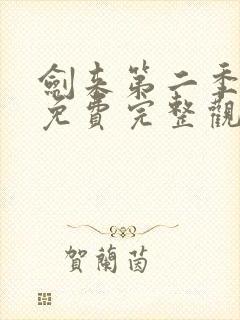 劍来第二季
免費完整觀
賀蘭茵